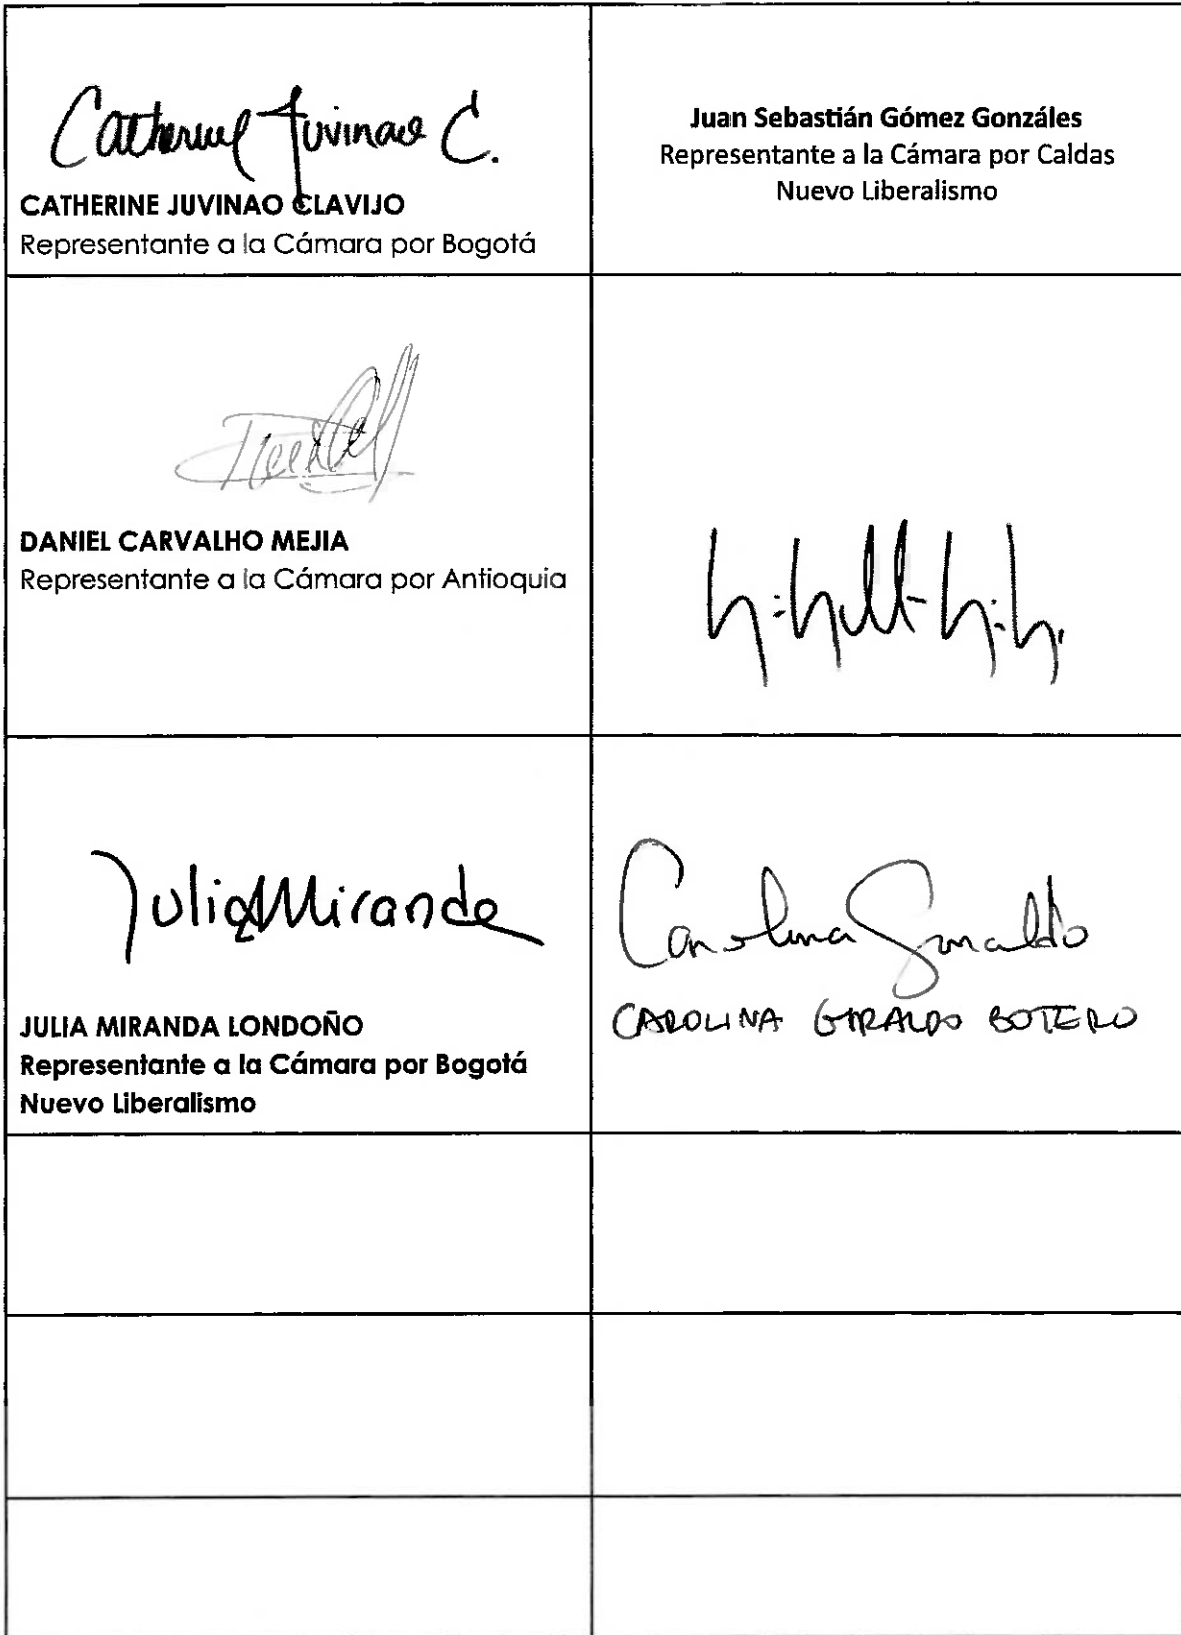 Catherine Juvinao C.
CATHERINE JUVINAO CLAVIJO
Representante a la Cámara por Bogotá
Juan Sebastián Gómez Gonzáles
Representante a la Cámara por Caldas
Nuevo Liberalismo
DANIEL CARVALHO MEJIA
Representante a la Cámara por Antioquia
Julia Miranda
JULIA MIRANDA LONDOÑO
Representante a la Cámara por Bogotá
Nuevo Liberalismo
Carolina Giraldo
CAROLINA GIRALDO BOTERO